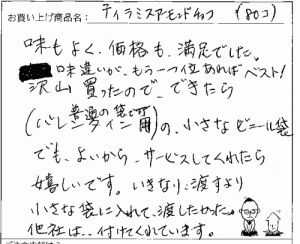 お買い上げ商品名： ティラミスアーモンドチョコ (80コ)
味もよく、価格も、満足でした。
味違いが、もう一つ位あればベスト！
沢山買ったので、できたら
普通の袋で可
(バレンタイン用)の、小さなビニール袋
でも、よいから、サービスしてくれたら
嬉しいです。いきなり、渡すより
小さな袋に入れて、渡したかった。
他社は、付けてくれています。